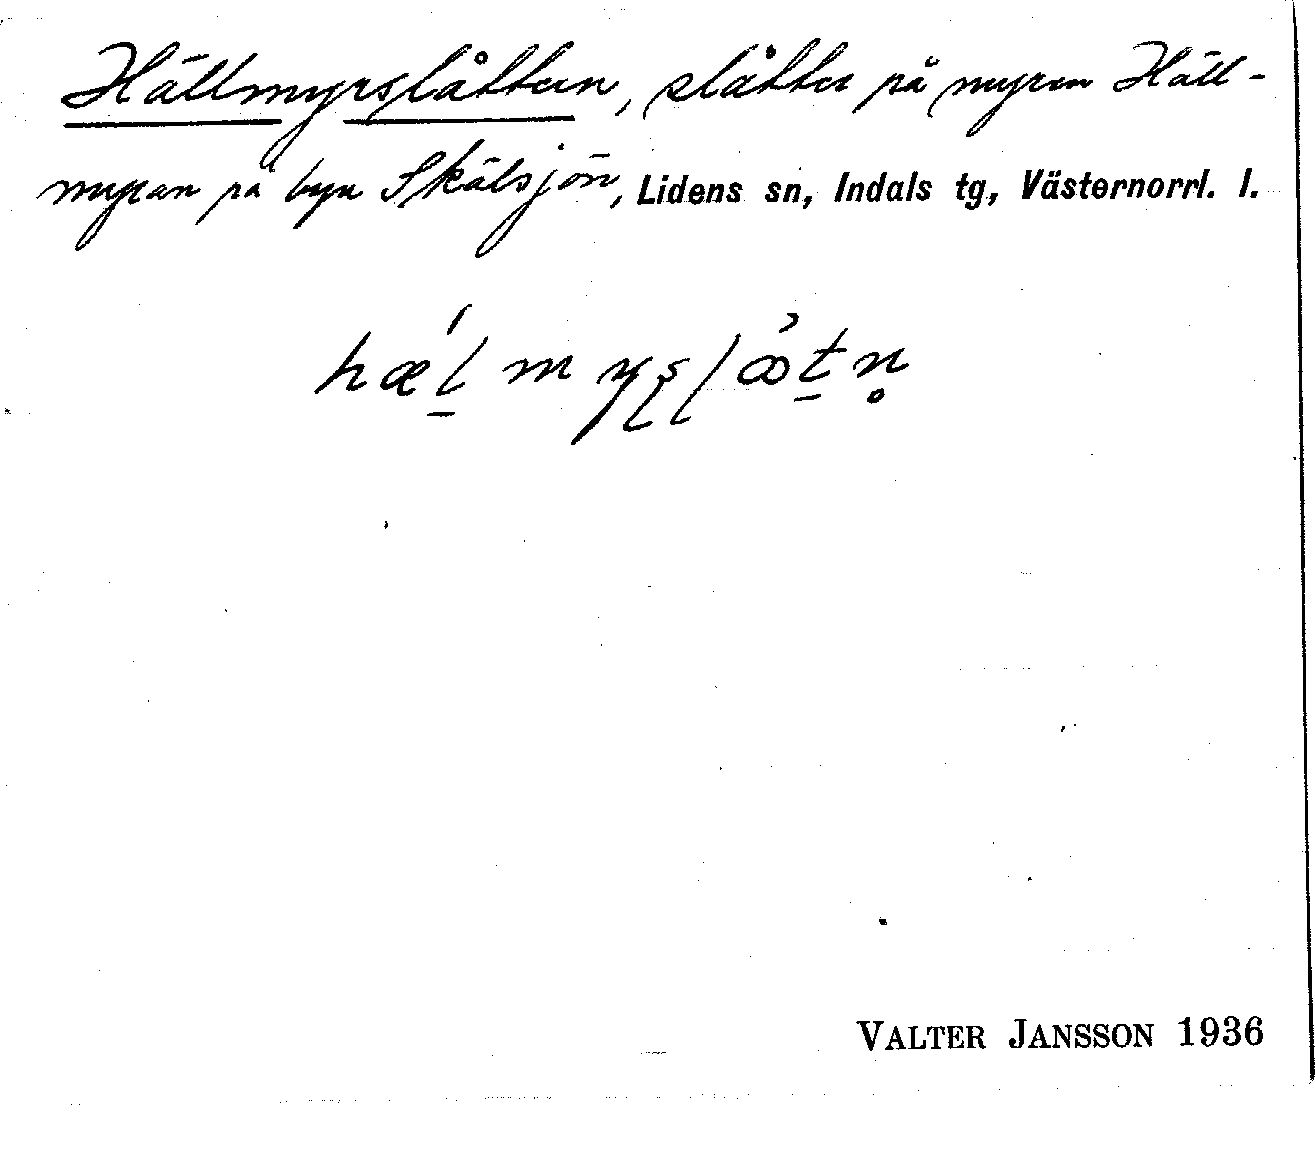 Hällmyrslåtten, slåtter på myren Häll-
myran på byn Skälsjön, Lidens sn, Indals tg, Västernorrl. l.
VALTER JANSSON 1936